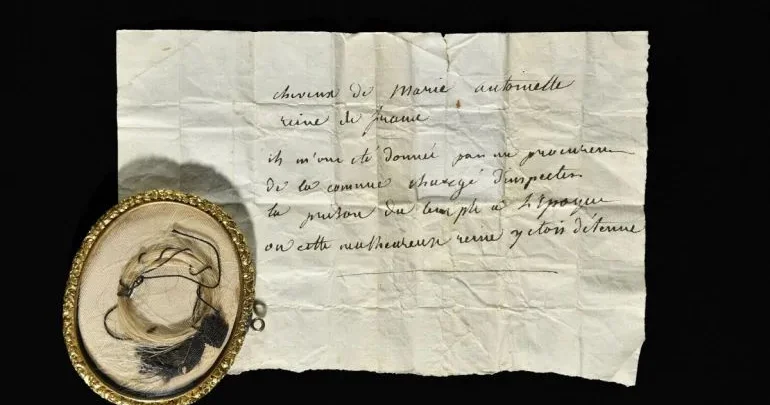 cheveux de marie antoinette
reine de france
ils m'ont été donnée par un procureur
de la comune chargé d'inspecter
la prison du temple à l'Epoque
ou cette malheureuse reine y etois détenue